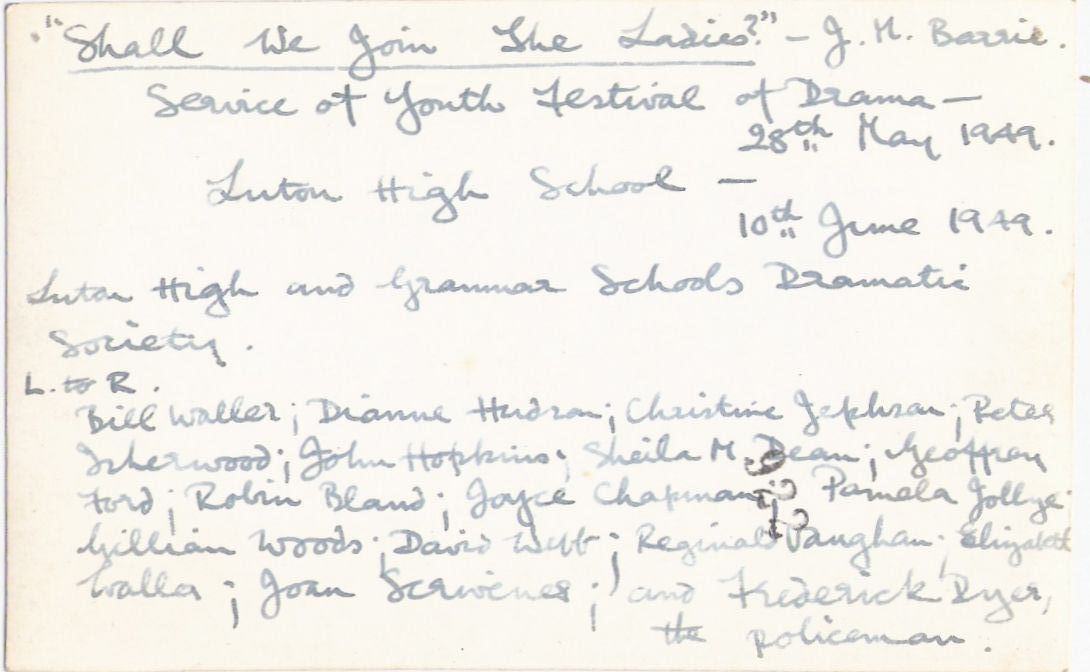 "Shall We Join The Ladies?" - J. M. Barrie.
Service of Youth Festival of Drama -
28th May 1949.
Luton High School -
10th June 1949.
Luton High and Grammar Schools Dramatic
Society.
L. to R.
Bill Waller; Dianne Hudson; Christine Jephson; Peter
Isherwood; John Hopkins; Sheila M. Dean; Geoffrey
Ford; Robin Bland; Joyce Chapman; Pamela Jollye;
Gillian Woods; David Webb; Reginald Vaughan; Elizabeth
Waller; Joan Scrivener; and Frederick Dyer,
the policeman.